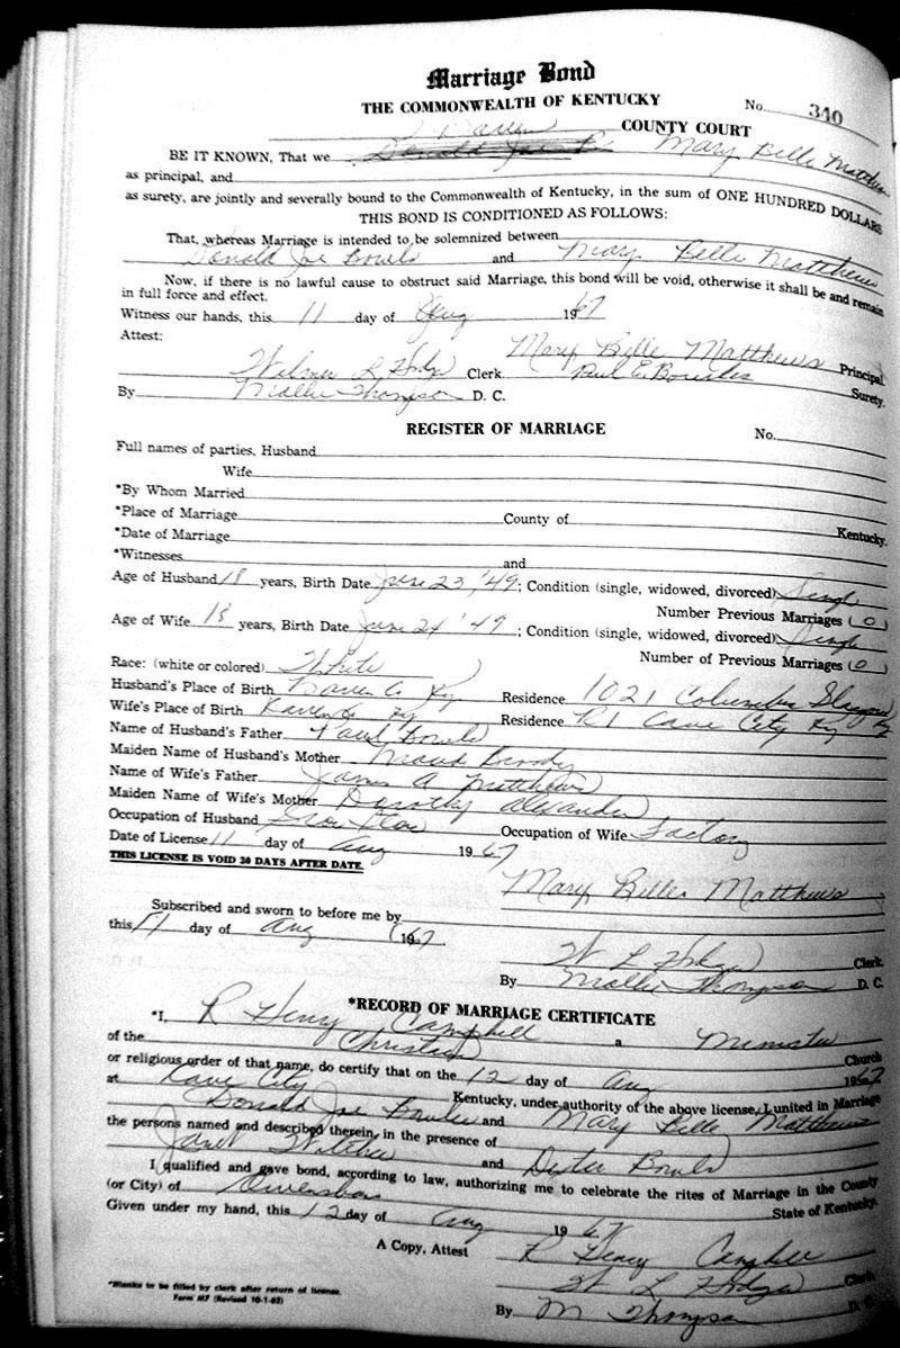 Marriage Bond
THE COMMONWEALTH OF KENTUCKY No. 340
Barren COUNTY COURT
BE IT KNOWN, That we Mary Belle Matthews
as principal, and
as surety, are jointly and severally bound to the Commonwealth of Kentucky, in the sum of ONE HUNDRED DOLLARS
THIS BOND IS CONDITIONED AS FOLLOWS:
That, whereas Marriage is intended to be solemnized between
Donald Joe Bowls and Mary Belle Matthews
Now, if there is no lawful cause to obstruct said Marriage, this bond will be void, otherwise it shall be and remain
in full force and effect.
Witness our hands, this 11 day of Aug 1967
Attest: Mary Belle Matthews Principal
Clerk Paul E. Bowles Surety.
By Mollie Thompson D. C.
REGISTER OF MARRIAGE No.
Full names of parties, Husband
Wife
*By Whom Married
*Place of Marriage County of Kentucky.
*Date of Marriage
*Witnesses and
Age of Husband 18 years, Birth Date June 23, '49; Condition (single, widowed, divorced) Single
Number Previous Marriages (0)
Age of Wife 18 years, Birth Date June 24 '49; Condition (single, widowed, divorced) Single
Number of Previous Marriages (0)
Race: (white or colored) White
Husband's Place of Birth Barren Co Ky Residence 1021 Columbia Glasgow Ky
Wife's Place of Birth Barren Co Ky Residence R 1 Cave City Ky
Name of Husband's Father Paul Bowls
Maiden Name of Husband's Mother
Name of Wife's Father James A Matthews
Maiden Name of Wife's Mother Dorothy Alexander
Occupation of Husband Occupation of Wife Factory
Date of License 11 day of Aug 1967
THIS LICENSE IS VOID 30 DAYS AFTER DATE.
Mary Belle Matthews
Subscribed and sworn to before me by
this 11 day of Aug 1967
W L Clerk
By Mollie Thompson D. C.
*RECORD OF MARRIAGE CERTIFICATE
*I, R Henry Campbell a Minister
of the Christian Church
or religious order of that name, do certify that on the 12 day of Aug 1967
at Cave City Kentucky, under authority of the above license, I united in Marriage
Donald Joe Bowles and Mary Belle Matthews
the persons named and described therein, in the presence of
Janet and Dexter Bowls
I qualified and gave bond, according to law, authorizing me to celebrate the rites of Marriage in the County
(or City) of Owensboro State of Kentucky.
Given under my hand, this 12 day of Aug 1967
A Copy, Attest R Henry Campbell
W L Clerk
By M Thompson D. C.
*Blanks to be filled by clerk after return of license.
Form MF (Revised 10-1-62)